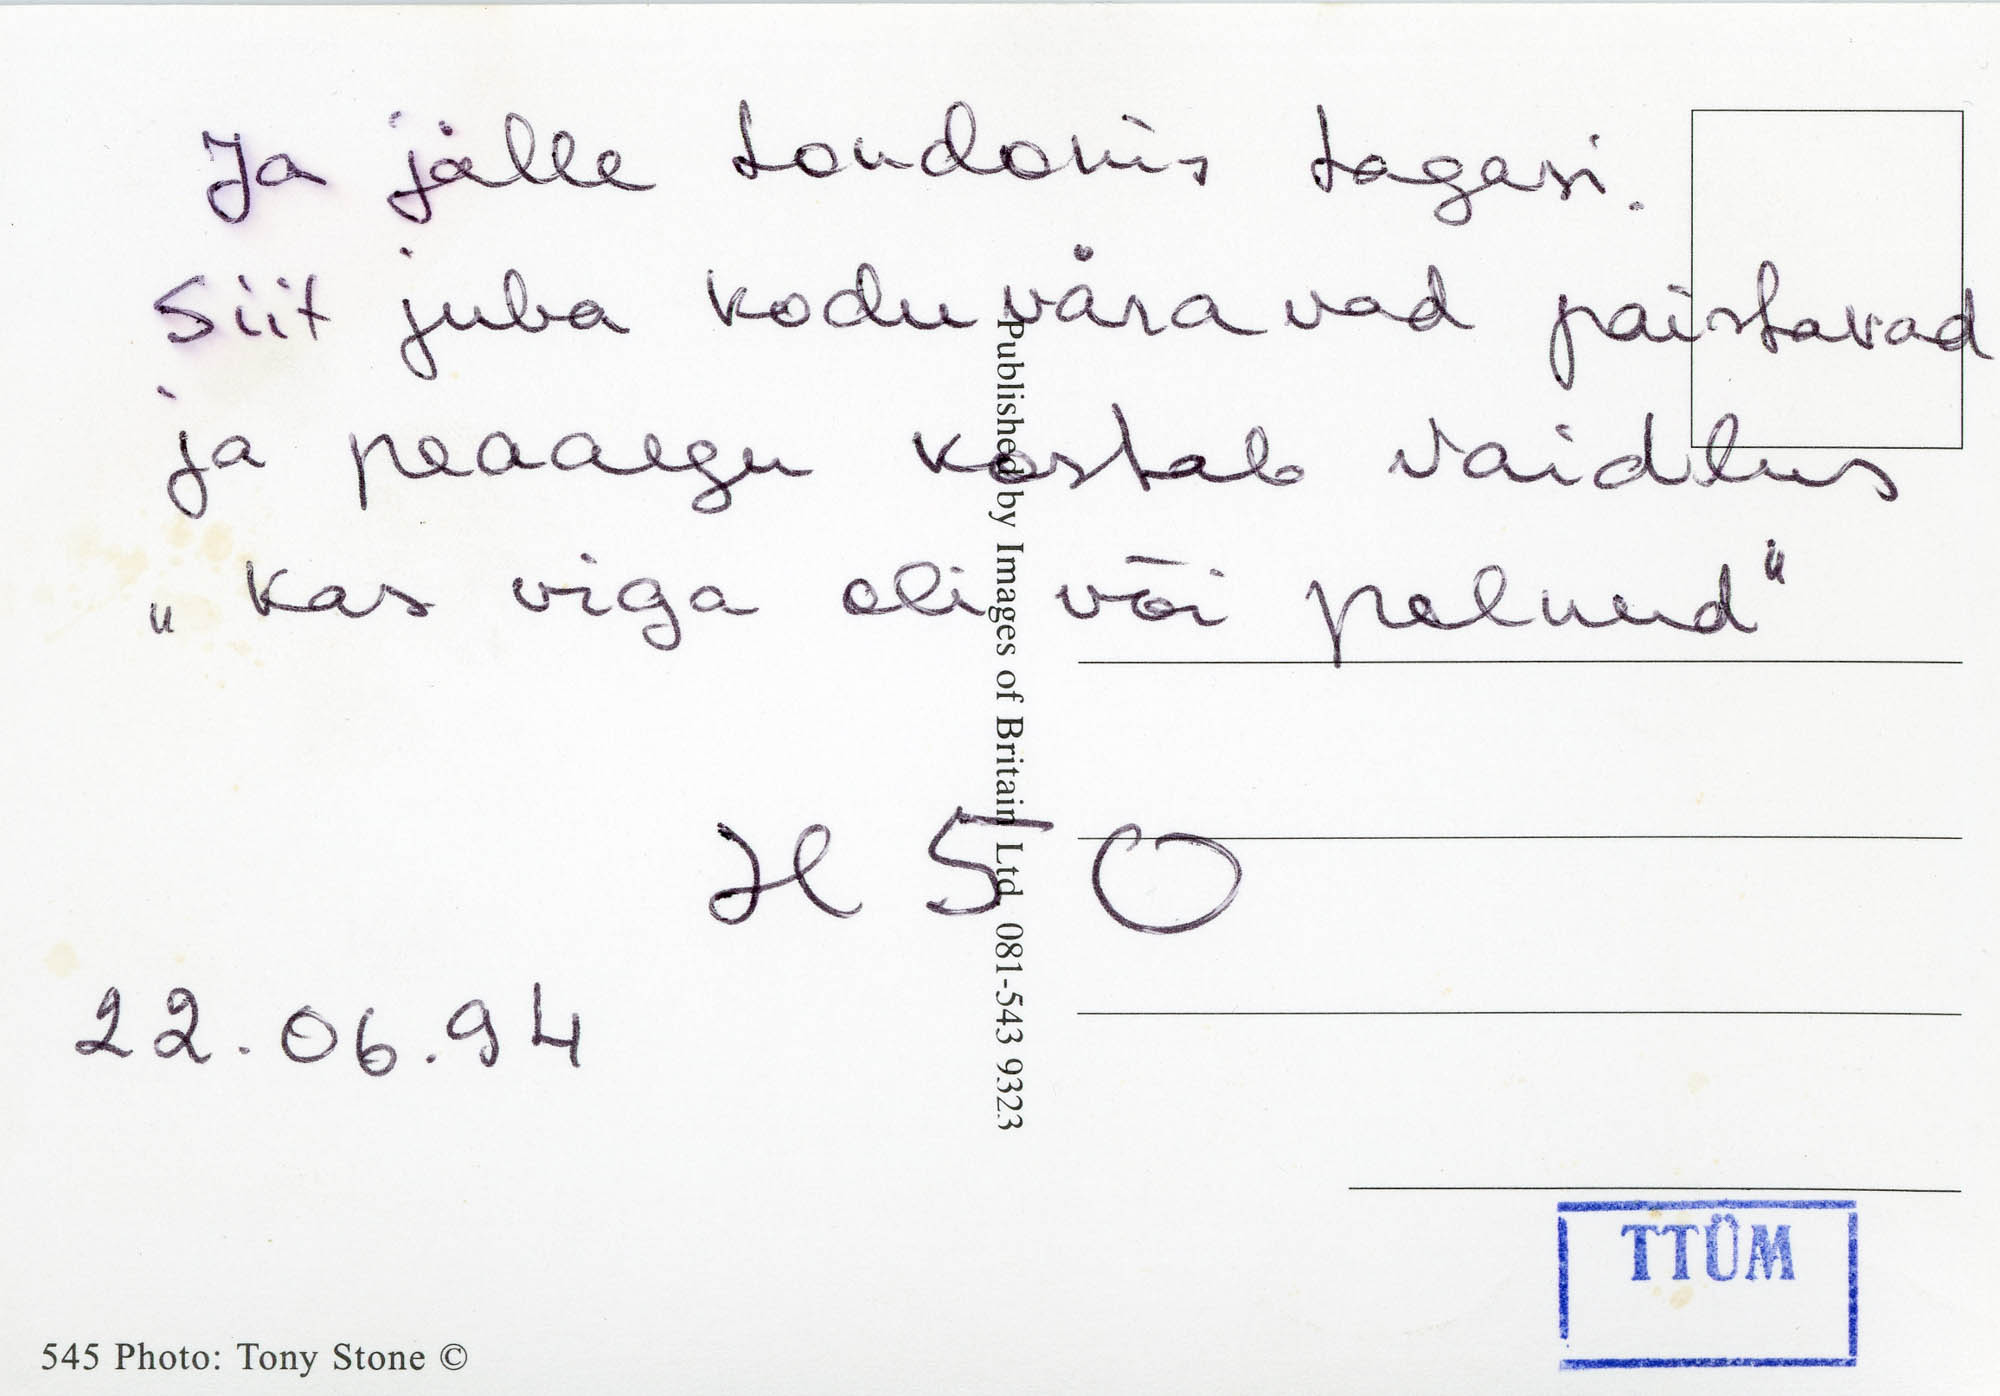 Ja jälle Londonis tagasi.
Siit juba koduväravad paistavad
ja peaaegu kostab vaidlus
„kas viga oli või polnud"
H50
22.06.94
Published by Images of Britain Ltd. 081-543 9323
TTÜM
545 Photo: Tony Stone ©